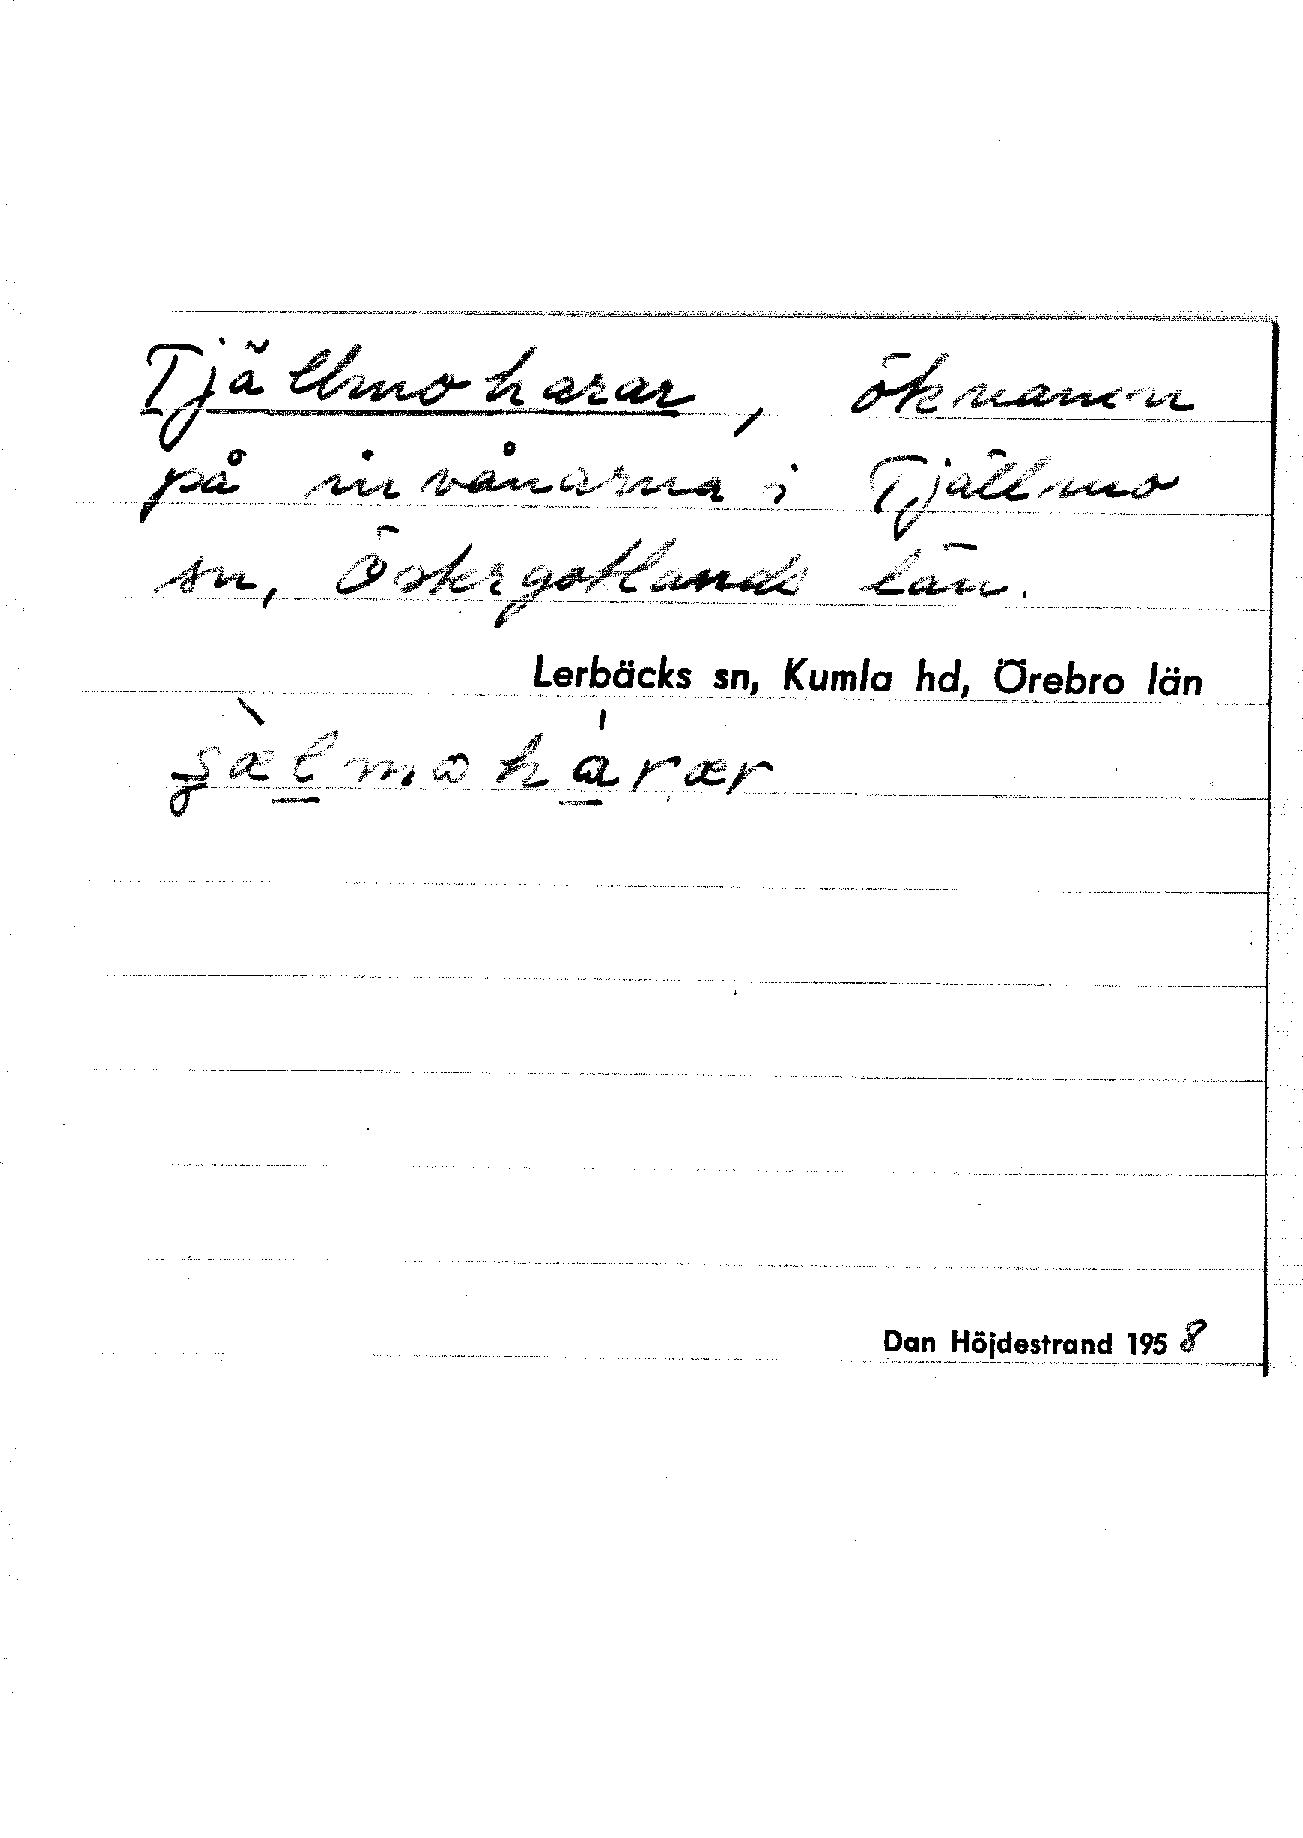 Tjällmoharar, öknamn
på invånarna i Tjällmo
sn, Östergötlands län.
Lerbäcks sn, Kumla hd, Örebro län
Dan Höjdestrand 1958